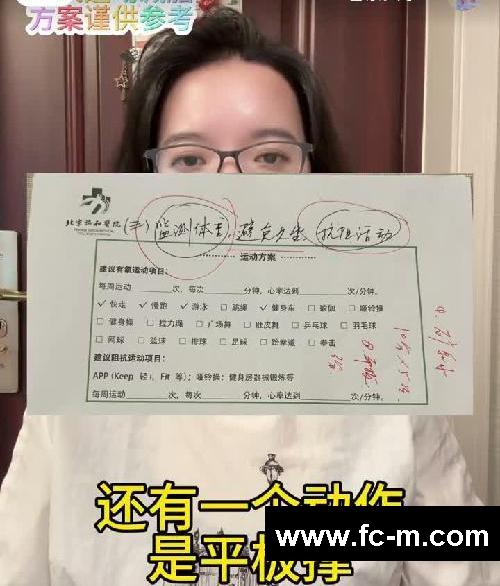 方案谨供参考
北京协和医院
(手) 监测体重,避免久坐,抗阻活动
运动方案
建议有氧运动项目:
每周运动______次,每次______分钟,心率达到______次/分钟。
✓快走 ✓慢跑 ✓游泳 □跳绳 ✓健身车 □瑜伽 □哑铃操
□健身操 □拉力绳 □广场舞 □肚皮舞 □乒乓球 □羽毛球
□网球 □篮球 □排球 □足球 □跆拳道 □拳击
建议阻抗运动项目:
APP(Keep 轻), Fit 等);哑铃操;健身房器械锻炼等
每周运动______次,每次______分钟,心率达到______次/分钟。
还有一个动作
是平板撑
www.fc-m.com